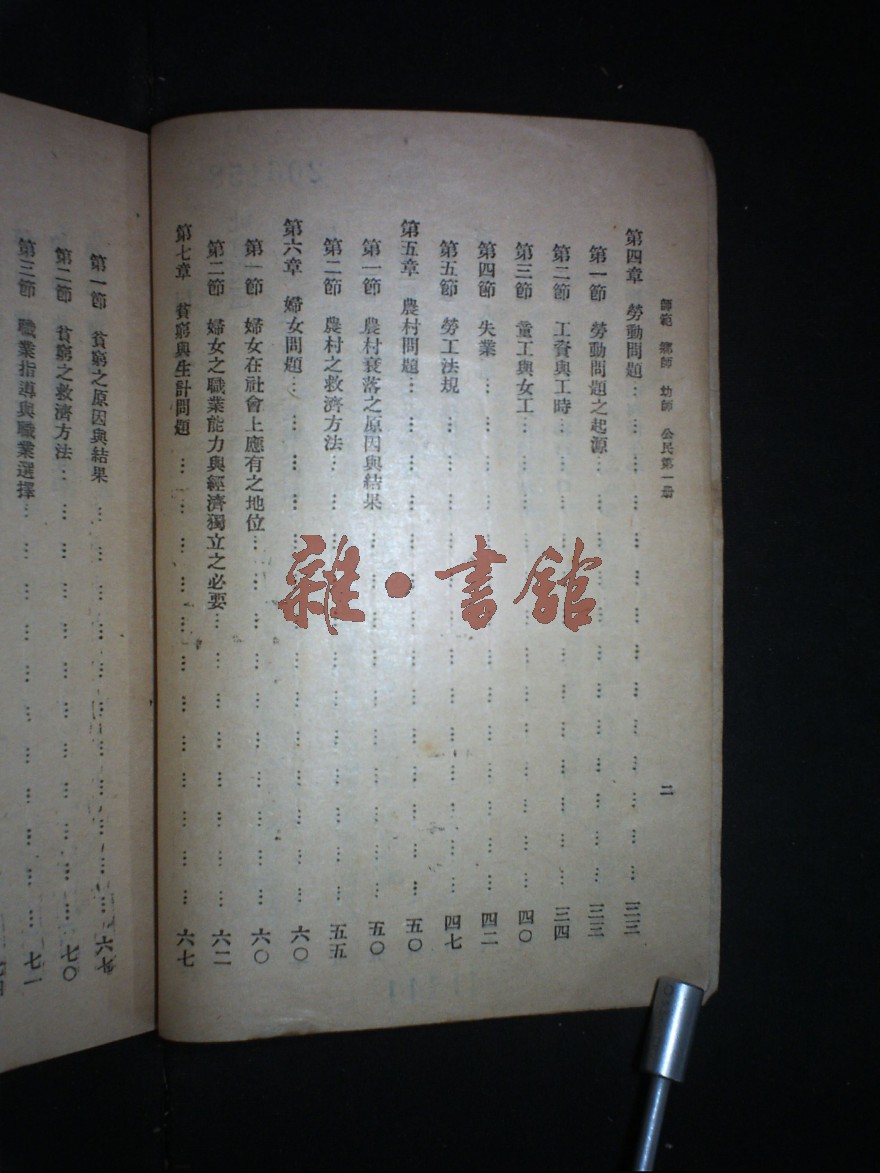 師範 鄉師 幼師 公民第一册
二
第四章 勞動問題………………………………………三三
第一節 勞動問題之起源………………………………………三三
第二節 工資與工時………………………………………三四
第三節 童工與女工………………………………………四〇
第四節 失業………………………………………四二
第五節 勞工法規………………………………………四七
第五章 農村問題………………………………………五〇
第一節 農村衰落之原因與結果………………………………………五〇
第二節 農村之救濟方法………………………………………五五
第六章 婦女問題………………………………………六〇
第一節 婦女在社會上應有之地位………………………………………六〇
第二節 婦女之職業能力與經濟獨立之必要………………………………………六二
第七章 貧窮與生計問題………………………………………六七
第一節 貧窮之原因與結果………………………………………
第二節 貧窮之救濟方法………………………………………七〇
第三節 職業指導與職業選擇………………………………………七一
雜·書館